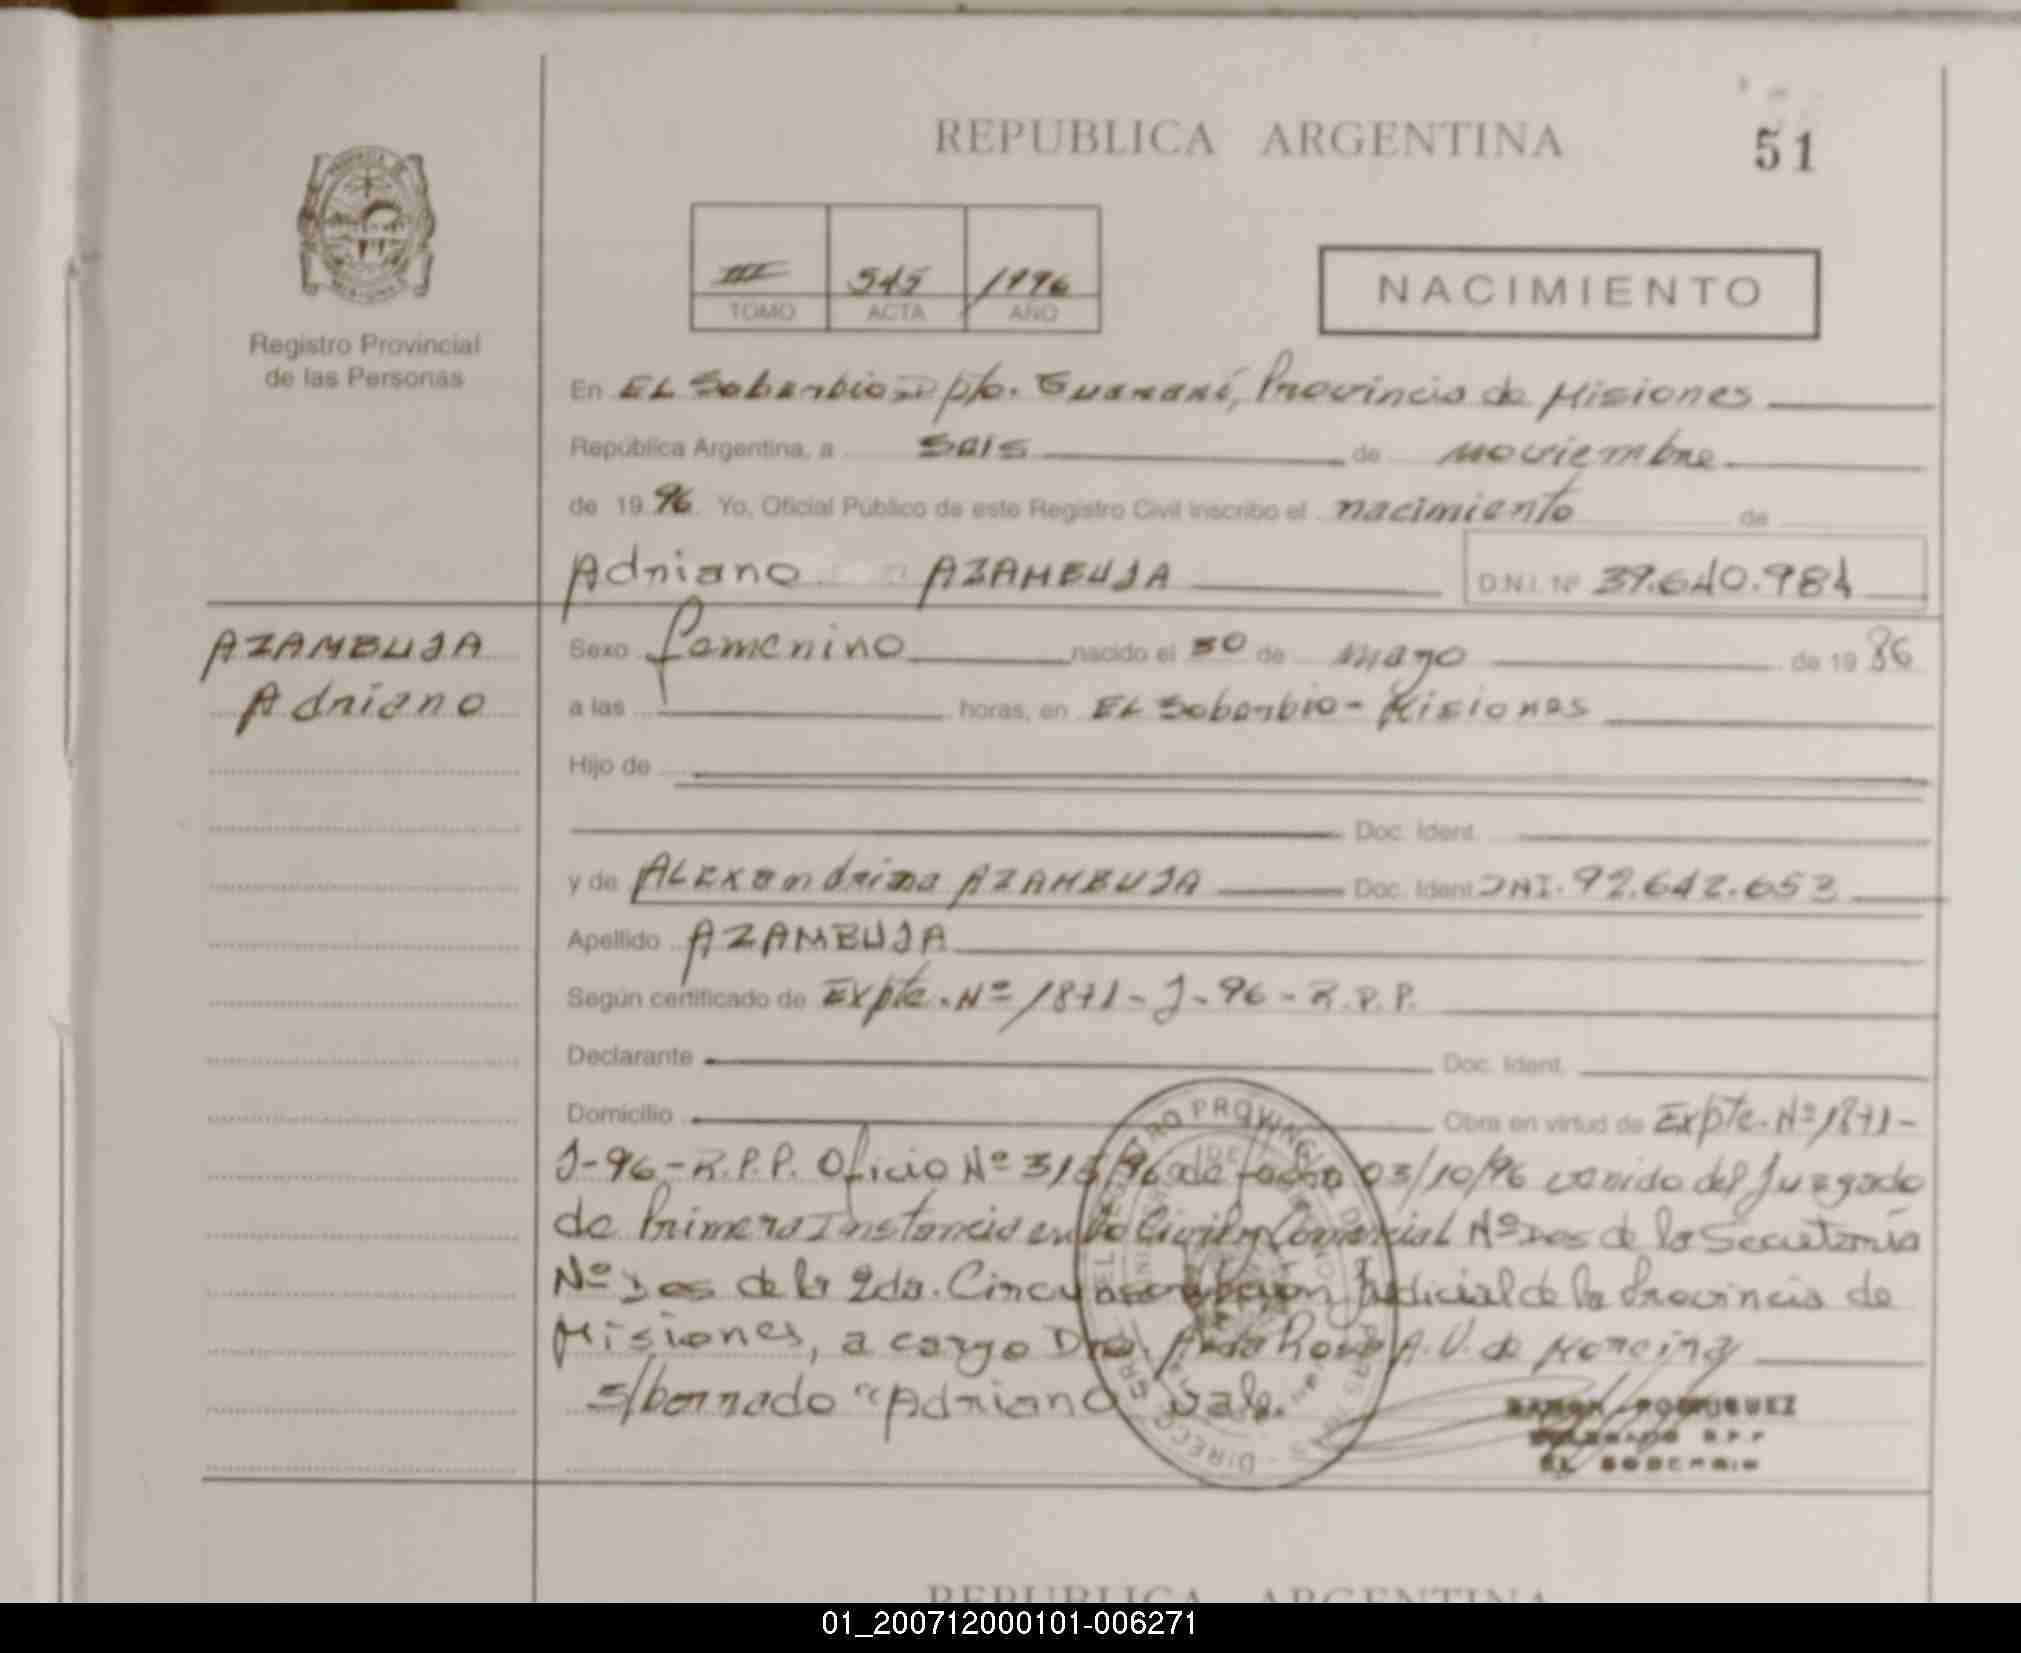 REPUBLICA ARGENTINA
51
III 545 1996
TOMO ACTA AÑO
NACIMIENTO
Registro Provincial
de las Personas
En EL Soberbio Dpto. Guaraní, Provincia de Misiones
República Argentina, a seis de noviembre
de 1996. Yo, Oficial Público de este Registro Civil inscribo el nacimiento de
Adriano AZAMBUJA D.N.I. Nº 39.640.984
AZAMBUJA
Adriano
Sexo femenino nacido el 30 de mayo de 1986
a las horas, en EL Soberbio - Misiones
Hijo de
Doc. Ident.
y de ALEXandrina AZAMBUJA Doc. Ident. DNI. 92.642.653
Apellido AZAMBUJA
Según certificado de Expte. Nº 1871-J-96-R.P.P.
Declarante Doc. Ident.
Domicilio Obra en virtud de Expte. Nº 1871-
J-96-R.P.P. Oficio Nº 315/96 de fecha 03/10/96 venido del Juzgado
de Primera Instancia en lo Civil y Comercial Nº Dos de la Secretaría
Nº Dos de la 2da. Circunscripción Judicial de la Provincia de
Misiones, a cargo Dra. A.V. de
S/borrado "Adriano" Vale.
RAMON RODRIGUEZ
DELEGADO R.P.P
EL SOBERBIO
REPUBLICA ARGENTINA
01_200712000101-006271